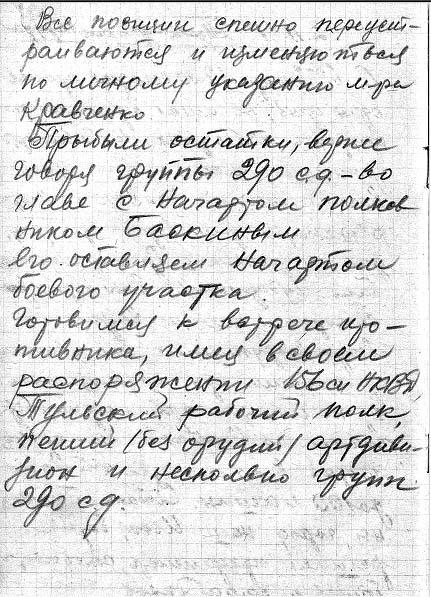 Все позиции спешно переуст-
раиваются и изменяються
по личному указанию м-ра
Кравченко
Прибыли остатки, вернее
говоря группы 290 с.д. - во
главе с Начартом полков
ником Баскиным
его оставляем Начартом
боевого участка.
Готовимся к встрече про-
тивника, имея в своем
распоряжении 156 сп НКВД,
Тульский рабочий полк,
пеший /без орудий/ артдиви-
зион и несколько групп
290 с.д.